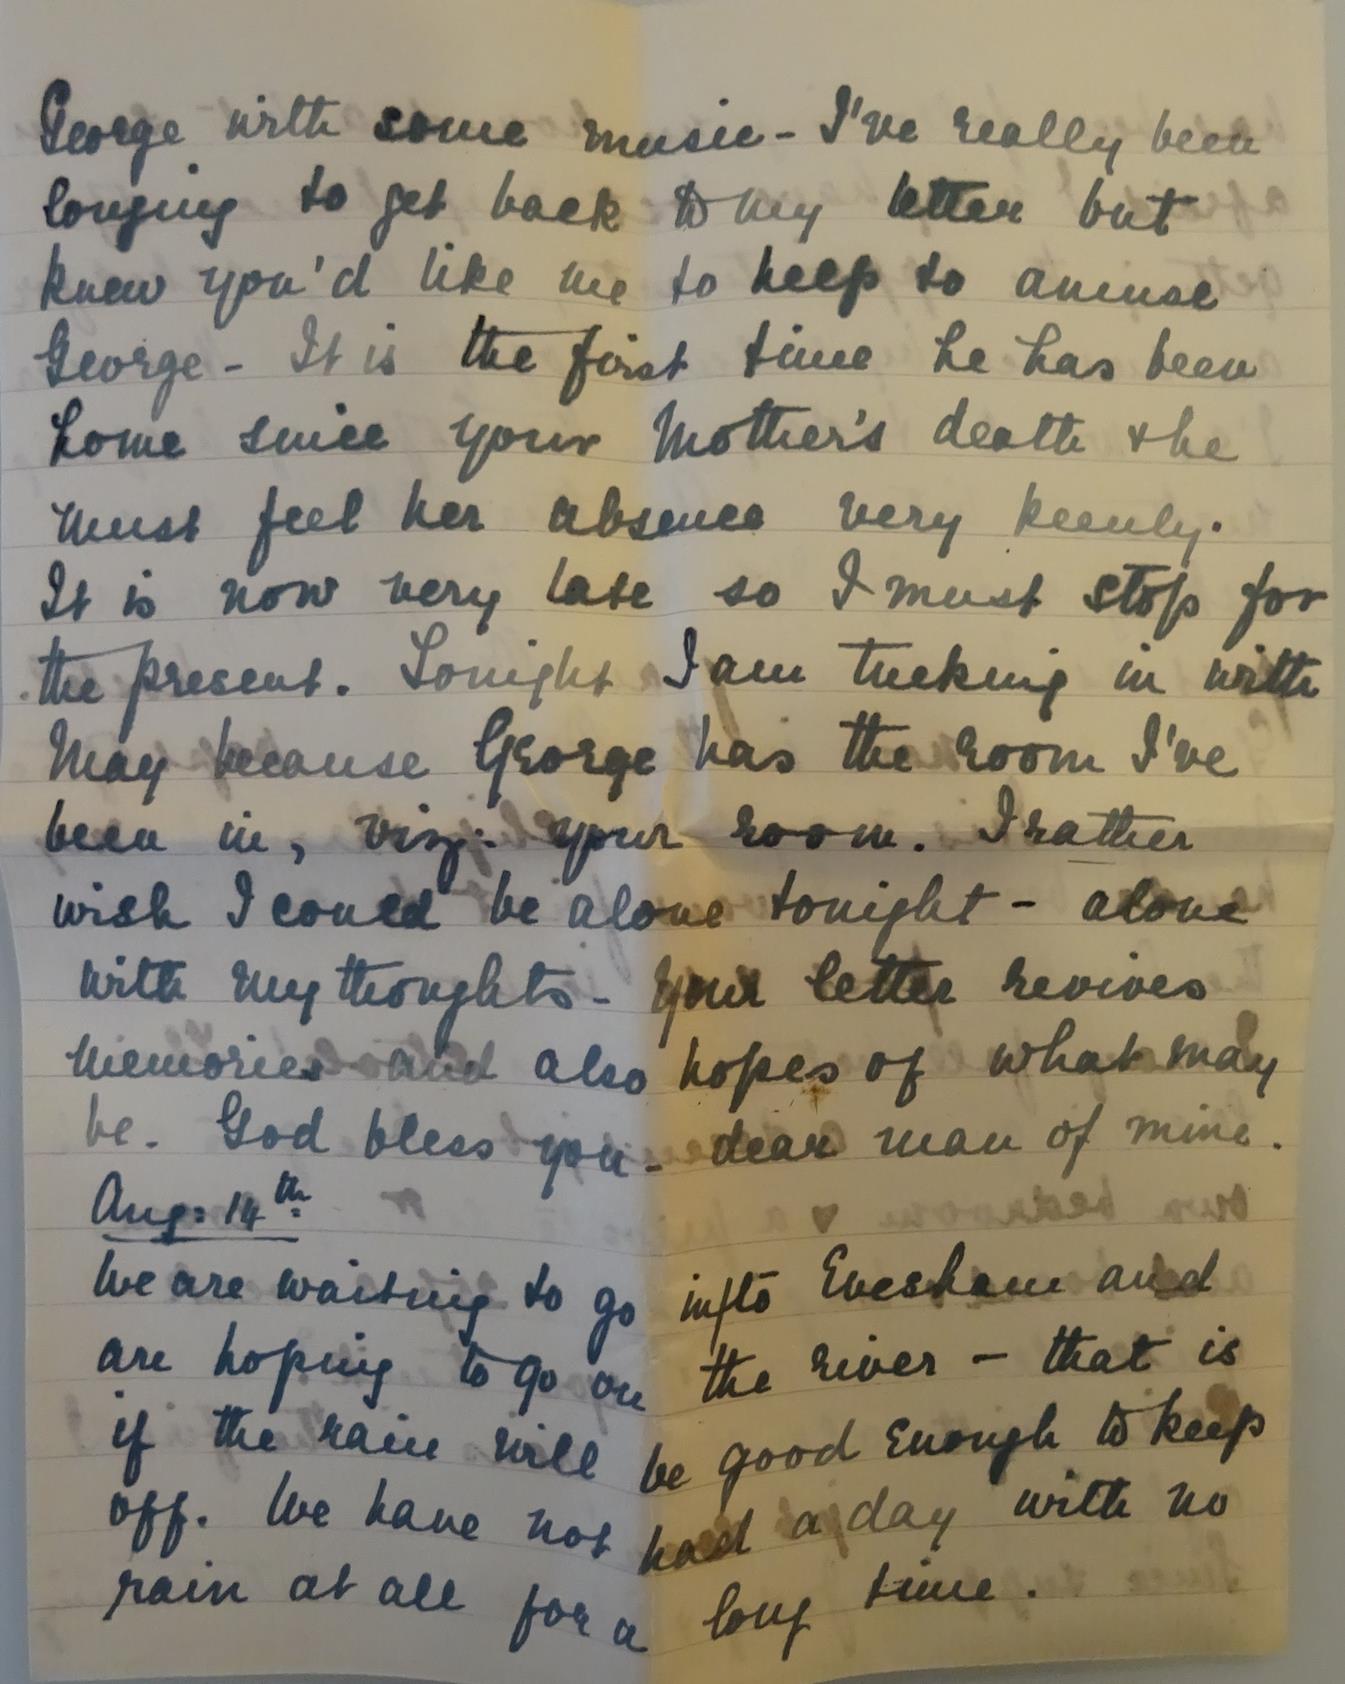 George with some music - I've really been
longing to get back to my letter but
knew you'd like me to help to amuse
George - It is the first time he has been
home since your Mother's death & he
must feel her absence very keenly.
It is now very late so I must stop for
the present. Tonight I am tucking in with
May because George has the room I've
been in, viz: your room. I rather
wish I could be alone tonight - alone
with my thoughts - your letter revives
memories and also hopes of what may
be. God bless you - dear man of mine.
Aug: 14th
We are waiting to go into Evesham and
are hoping to go on the river - that is
if the rain will be good enough to keep
off. We have not had a day with no
rain at all for a long time.